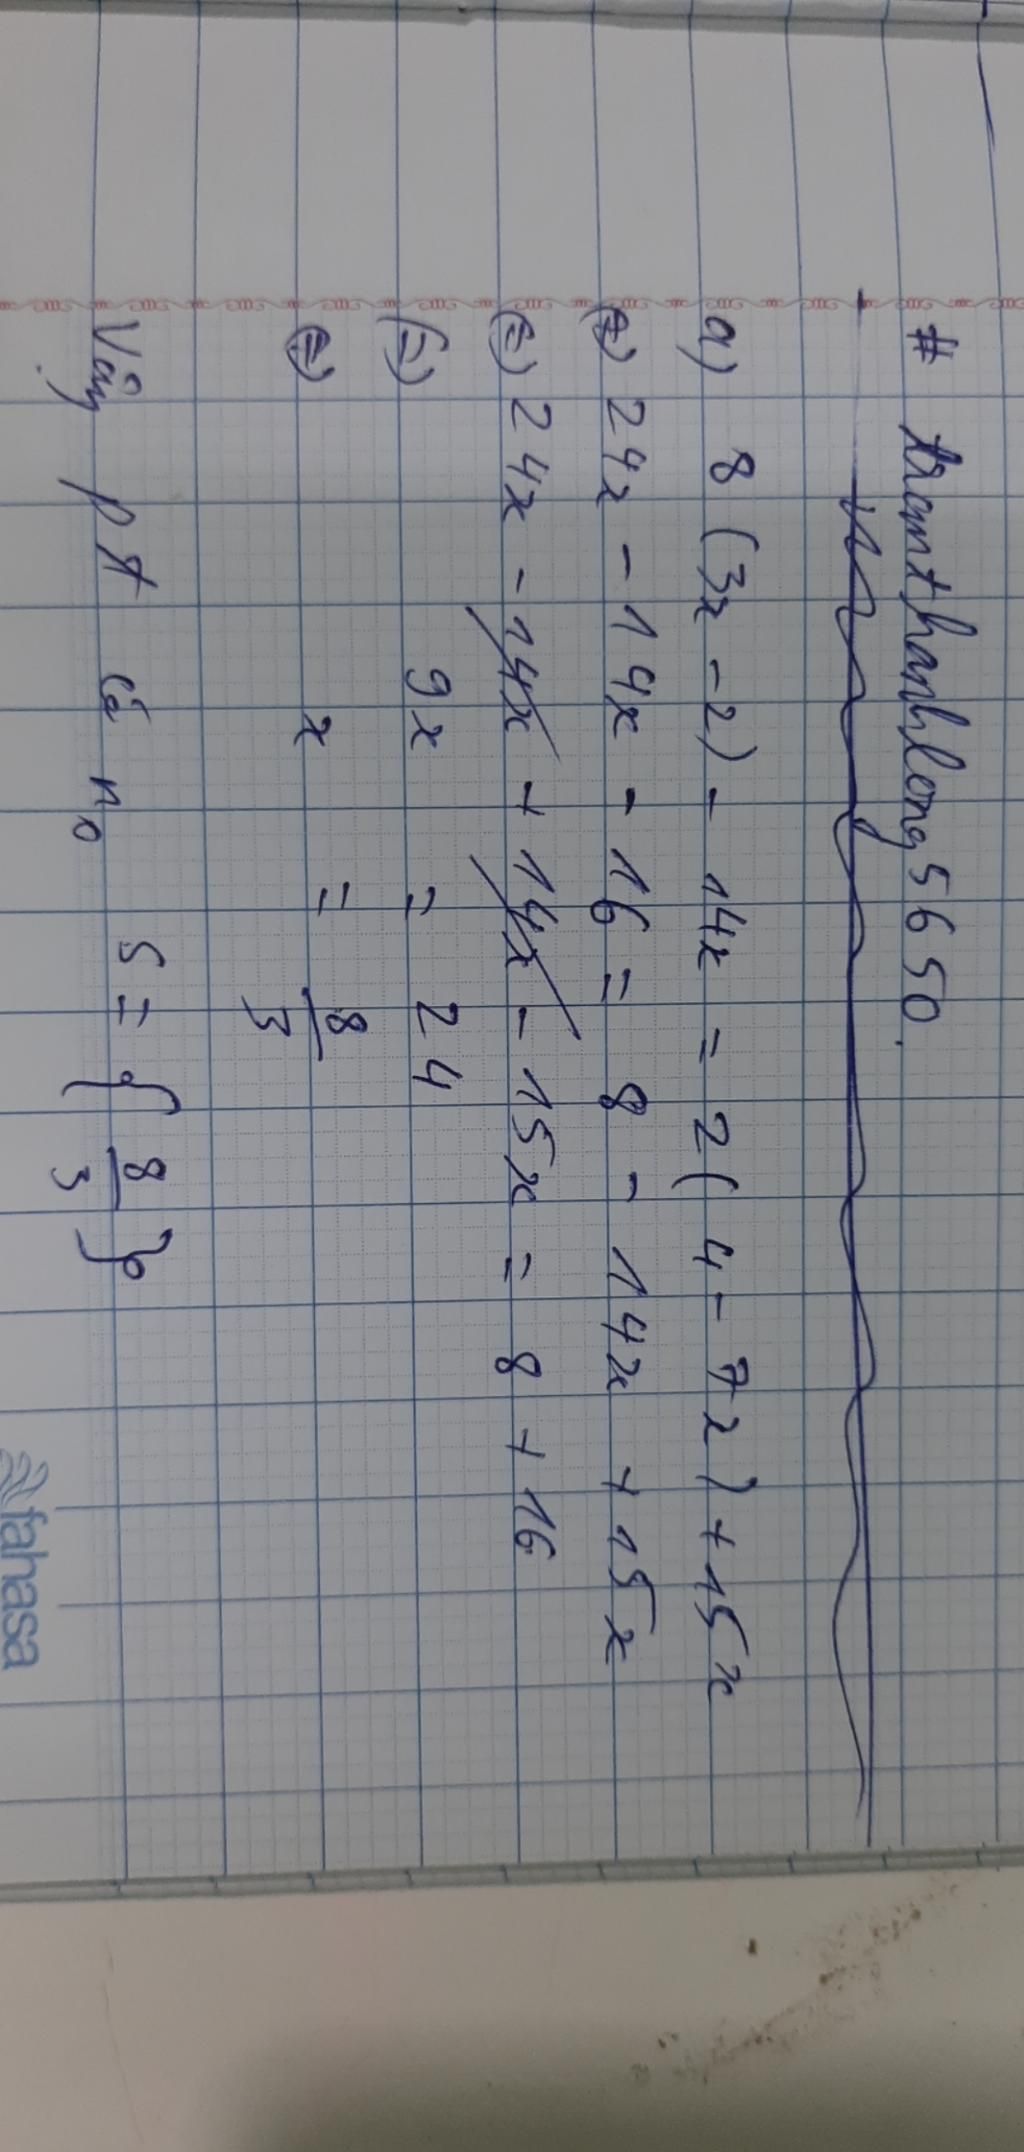 # tranthanhlong5650.
a) 8 (3x - 2) - 14x = 2( 4 - 7x ) + 15x
(=) 24x - 14x - 16 = 8 - 14x + 15x
(=) 24x - 14x + 14x - 15x = 8 + 16
(=) 9x = 24
(=) x = 8/3
Vậy pt có n0 S = { 8/3 }
fahasa